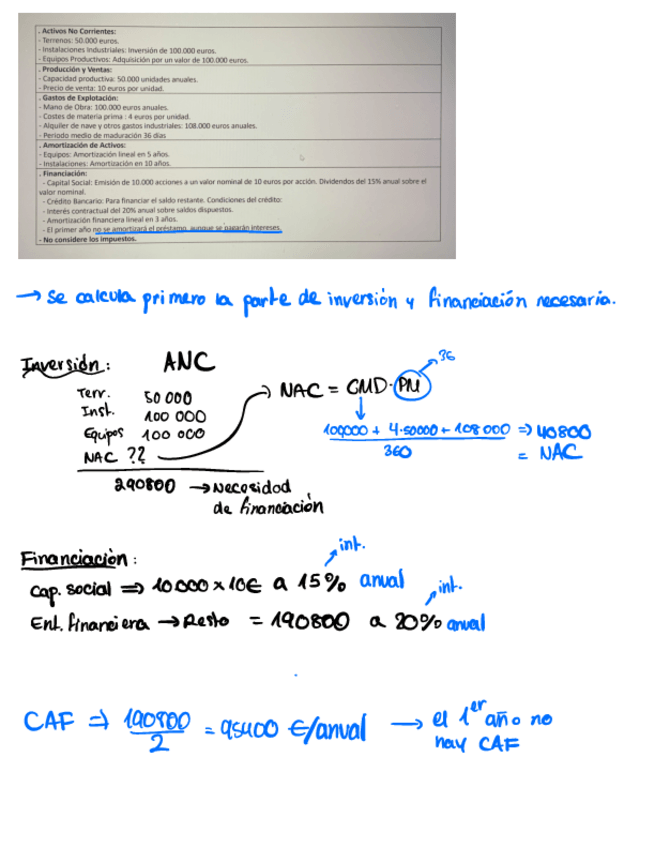 . Activos No Corrientes:
- Terrenos: 50.000 euros.
- Instalaciones Industriales: Inversión de 100.000 euros.
- Equipos Productivos: Adquisición por un valor de 100.000 euros.
. Producción y Ventas:
- Capacidad productiva: 50.000 unidades anuales.
- Precio de venta: 10 euros por unidad.
. Gastos de Explotación:
- Mano de Obra: 100.000 euros anuales.
- Costes de materia prima : 4 euros por unidad.
- Alquiler de nave y otros gastos industriales: 108.000 euros anuales.
- Periodo medio de maduración 36 días
. Amortización de Activos:
- Equipos: Amortización lineal en 5 años.
- Instalaciones: Amortización en 10 años.
. Financiación:
- Capital Social: Emisión de 10.000 acciones a un valor nominal de 10 euros por acción. Dividendos del 15% anual sobre el
valor nominal.
- Crédito Bancario: Para financiar el saldo restante. Condiciones del crédito:
- Interés contractual del 20% anual sobre saldos dispuestos.
- Amortización financiera lineal en 3 años.
- El primer año no se amortizará el préstamo, aunque se pagarán intereses.
- No considere los impuestos.
→ Se calcula primero la parte de inversión y financiación necesaria.
Inversión: ANC
Terr. 50 000
Inst. 100 000
Equipos 100 000
NAC ??
290800 → Necesidad
de financiación
36
→ NAC = GMD · PM
100000 + 4·50000 + 108 000 ⇒ 40800
360 = NAC
Financiación:
int.
Cap. social ⇒ 10 000 x 10€ a 15% anual
int.
Ent. financiera → Resto = 190800 a 20% anual
CAF ⇒ 190800 = 95400 €/anual → el 1er año no
2 hay CAF